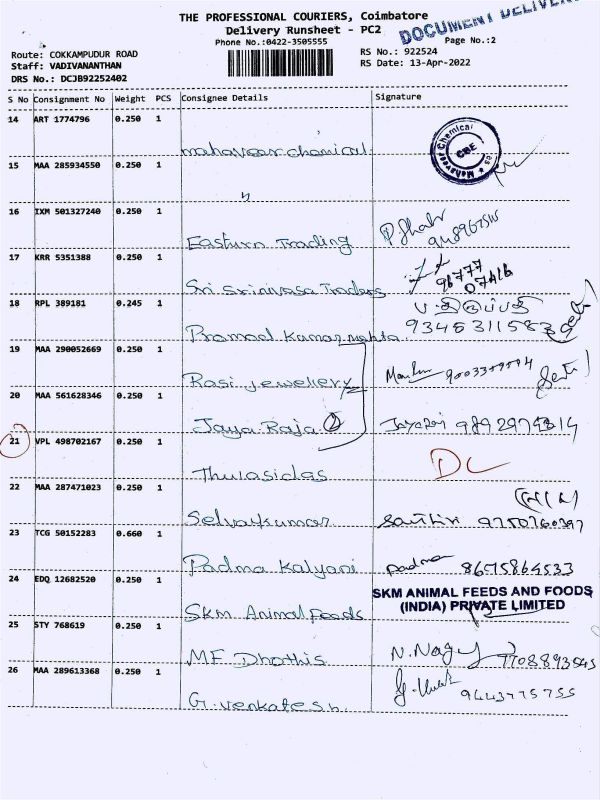 THE PROFESSIONAL COURIERS, Coimbatore
Delivery Runsheet - PC2
DOCUMENT DELIVER
Phone No.:0422-3505555
Page No.:2
Route: COKKAMPUDUR ROAD
RS No.: 922524
Staff: VADIVANANTHAN
RS Date: 13-Apr-2022
DRS No.: DCJB92252402
S No Consignment No Weight PCS Consignee Details Signature
14 ART 1774796 0.250 1
mahaveer chemical
Mahaveer Chemicals CBE
15 MAA 285934550 0.250 1
"
16 IXM 501327240 0.250 1
Eastern Trading P.Shah
17 KRR 5351388 0.250 1
Sri Srinivasa Traders 96777 07416
18 RPL 389181 0.245 1
Pramod Kumar mehta 9345311583
19 MAA 290052669 0.250 1
Rasi jewellery
20 MAA 561628346 0.250 1
Jaya Raja 2
21 VPL 498702167 0.250 1
Thulasidas DL
22 MAA 287471023 0.250 1
Selvakumar
23 TCG 50152283 0.660 1
Padma Kalyani Padma 8675864533
24 EDQ 12682520 0.250 1
SKM Animal foods
SKM ANIMAL FEEDS AND FOODS
(INDIA) PRIVATE LIMITED
25 STY 768619 0.250 1
MF Dhothis N.Nag 7708893545
26 MAA 289613368 0.250 1
G. venkatesh 9443775755